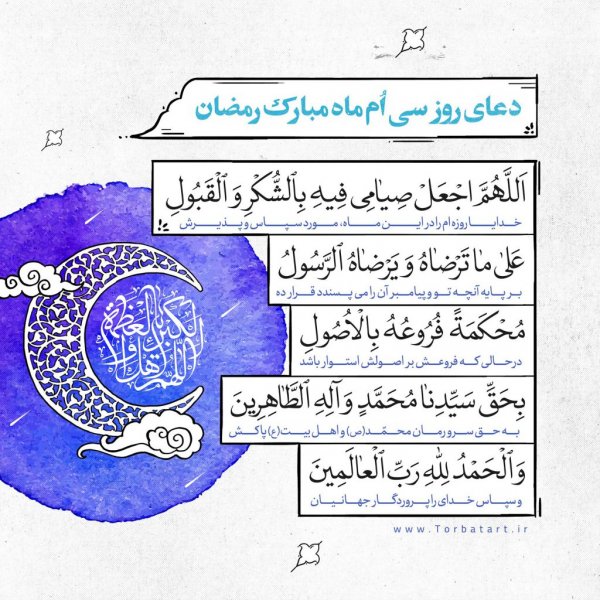 دعای روز سی اُم ماه مبارک رمضان
اَللَّهُمَّ اجْعَلْ صِيٰامِى فِيهِ بِالشُّكْرِ وَ الْقَبُولِ
خدایا روزه ام را در این ماه، مورد سپاس و پذیرش
عَلىٰ مٰا تَرْضٰاهُ وَ يَرْضٰاهُ الرَّسُولُ
بر پایه آنچه تو و پیامبر آن را می پسندد قرار ده
مُحْكَمَةً فُرُوعُهُ بِالْاُصُولِ
درحالی که فروعش بر اصولش استوار باشد
بِحَقِّ سَيِّدِنٰا مُحَمَّدٍ وَ آلِهِ الطَّاهِرِينَ
به حق سرورمان محمّد(ص) و اهل بیت(ع) پاکش
وَ الْحَمْدُ لِلّٰهِ رَبِّ الْعٰالَمِينَ
و سپاس خدای را پروردگار جهانیان
اللهم اهل الكبرياء والعظمة
www.Torbatart.ir